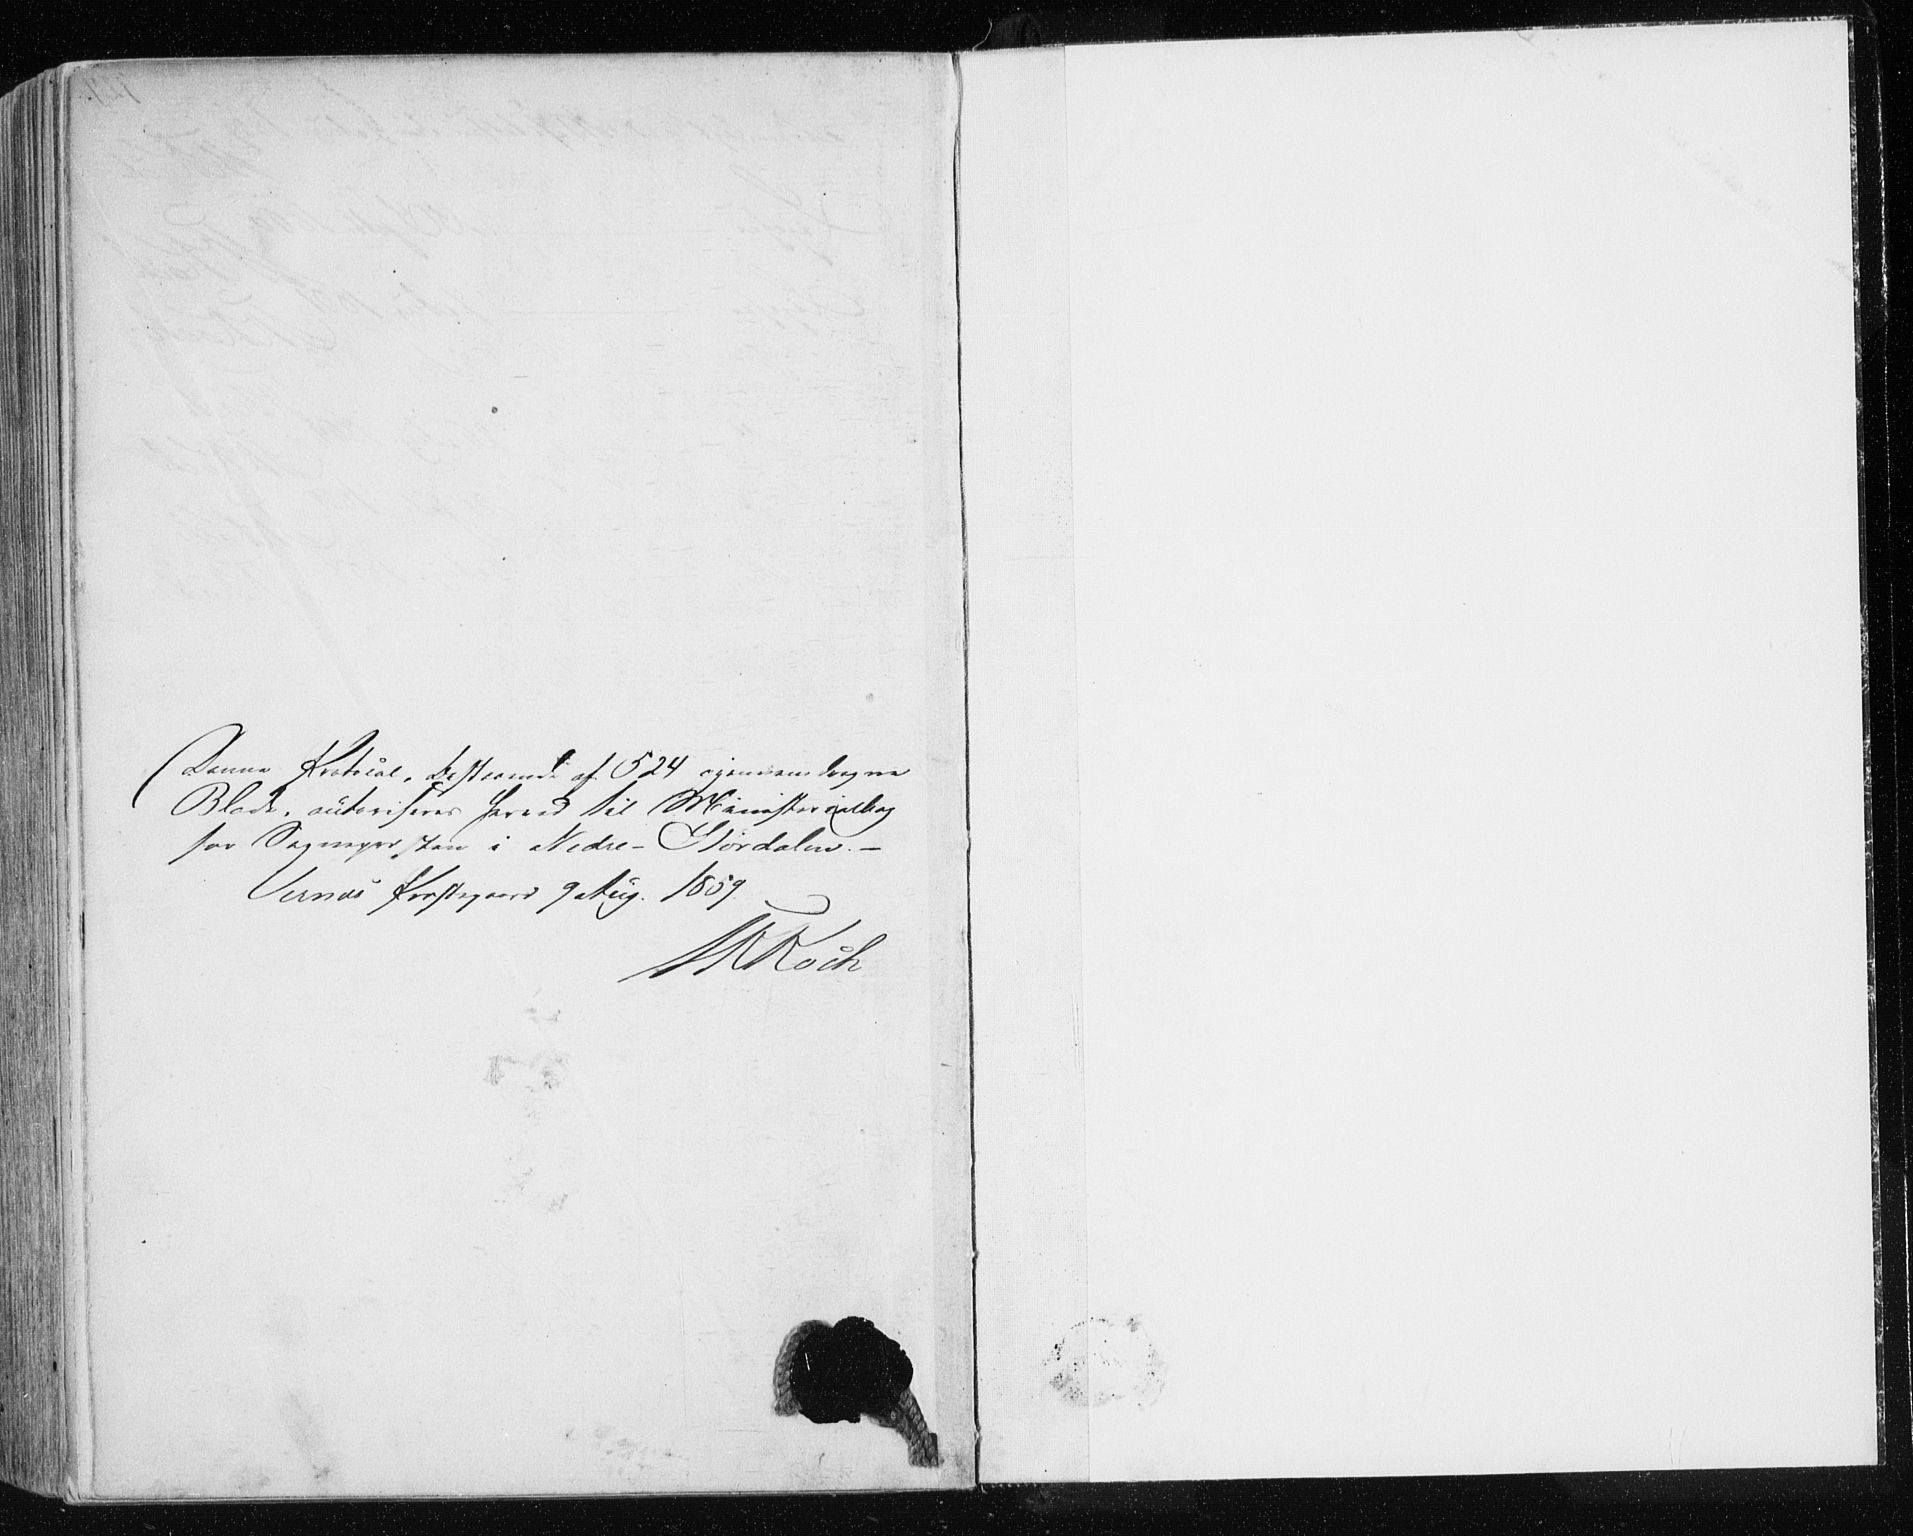 Denne Protocol, bestaaende af 524 igjennemdragne
Blade, autoriseres herved til Ministerialbog
for Sognepresten i Nedre-Stördalen. –
Vernæs Præstegaard 9 Aug. 1859.
Koch